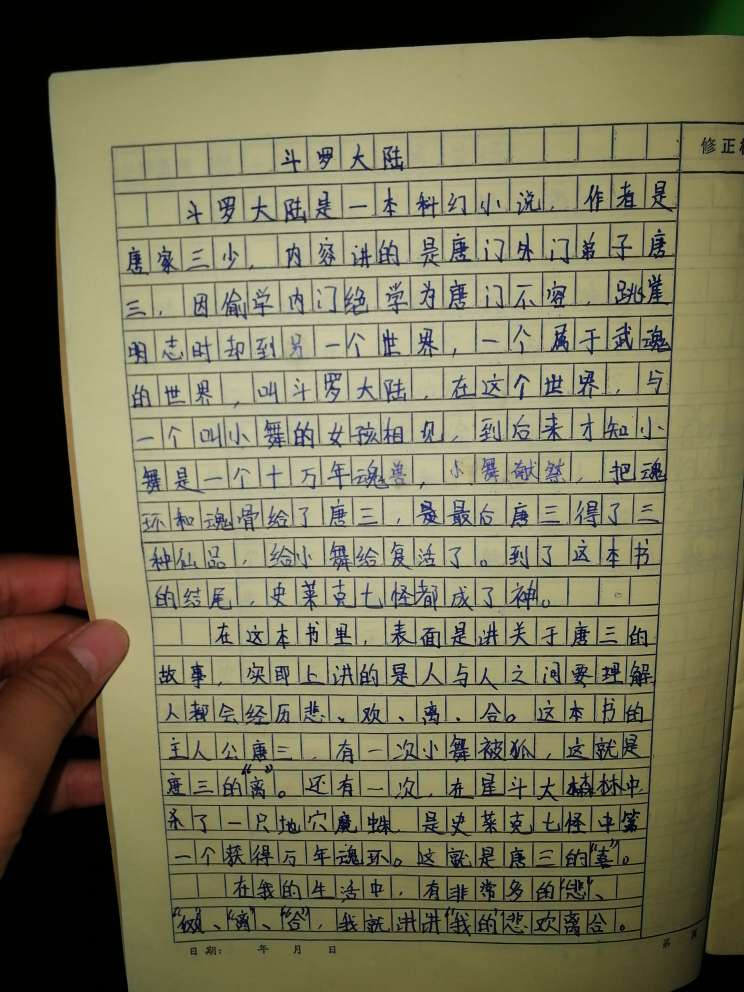 斗罗大陆
修正
斗罗大陆是一本科幻小说，作者是
唐家三少，内容讲的是唐门外门弟子唐
三，因偷学内门绝学为唐门不容，跳崖
明志时却到另一个世界，一个属于武魂
的世界，叫斗罗大陆，在这个世界，与
一个叫小舞的女孩相见，到后来才知小
舞是一个十万年魂兽，小舞献祭，把魂
环和魂骨给了唐三，最后唐三得了三
种仙品，给小舞给复活了。到了这本书
的结尾，史莱克七怪都成了神。
在这本书里，表面是讲关于唐三的
故事，实即上讲的是人与人之间要理解
人都会经历悲、欢、离、合。这本书的
主人公唐三，有一次小舞被狐，这就是
唐三的“离”。还有一次，在星斗大森林中
杀了一只地穴魔蛛，是史莱克七怪中第
一个获得万年魂环。这就是唐三的“喜”。
在我的生活中，有非常多的“悲”、
“欢”、“离”、“合”，我就讲讲“我的”悲欢离合。
日期： 年 月 日
第 页